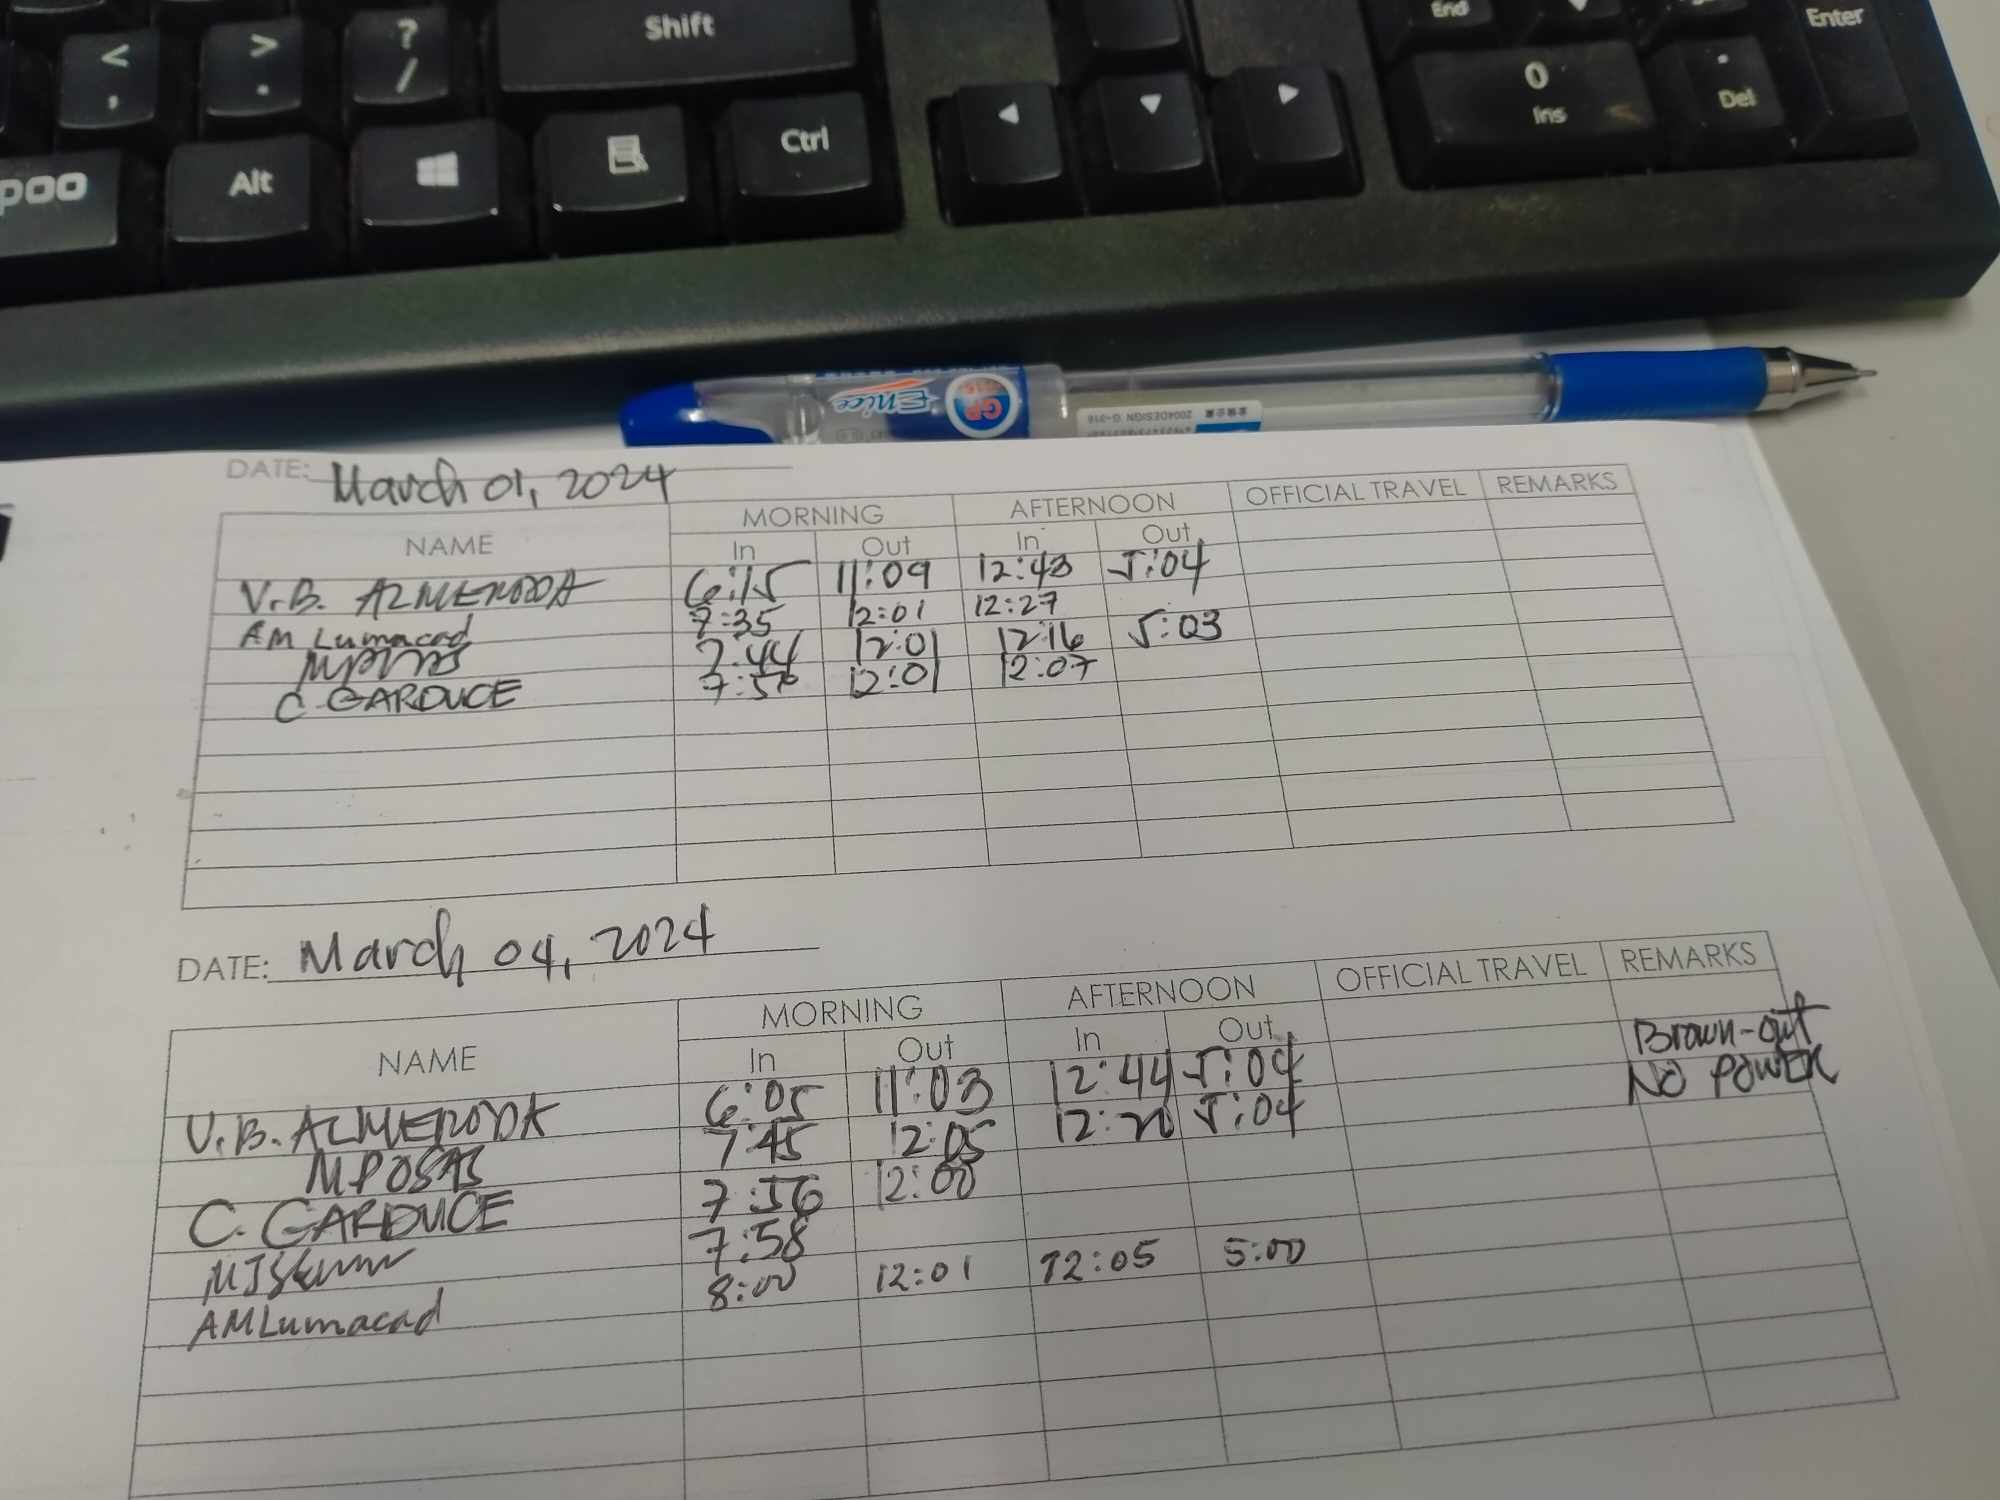 < , > . ? / Shift End Enter
poo Alt Ctrl 0 Ins . Del
Enice GP
2004DESIGN G-316
DATE: March 01, 2024
NAME MORNING AFTERNOON OFFICIAL TRAVEL REMARKS
In Out In Out
V.B. ALMERODA 6:15 11:09 12:43 5:04
AM Lumacad 7:35 12:01 12:27
7:44 12:01 12:16 5:03
C. GARDUCE 7:56 12:01 12:07
DATE: March 04, 2024
NAME MORNING AFTERNOON OFFICIAL TRAVEL REMARKS
In Out In Out
V.B. ALMERODA 6:05 11:03 12:44 5:04 Brown-out
MPOSAS 7:45 12:05 12:20 5:04 NO POWER
C. GARDUCE 7:56 12:00
7:58
AMLumacad 8:00 12:01 12:05 5:00